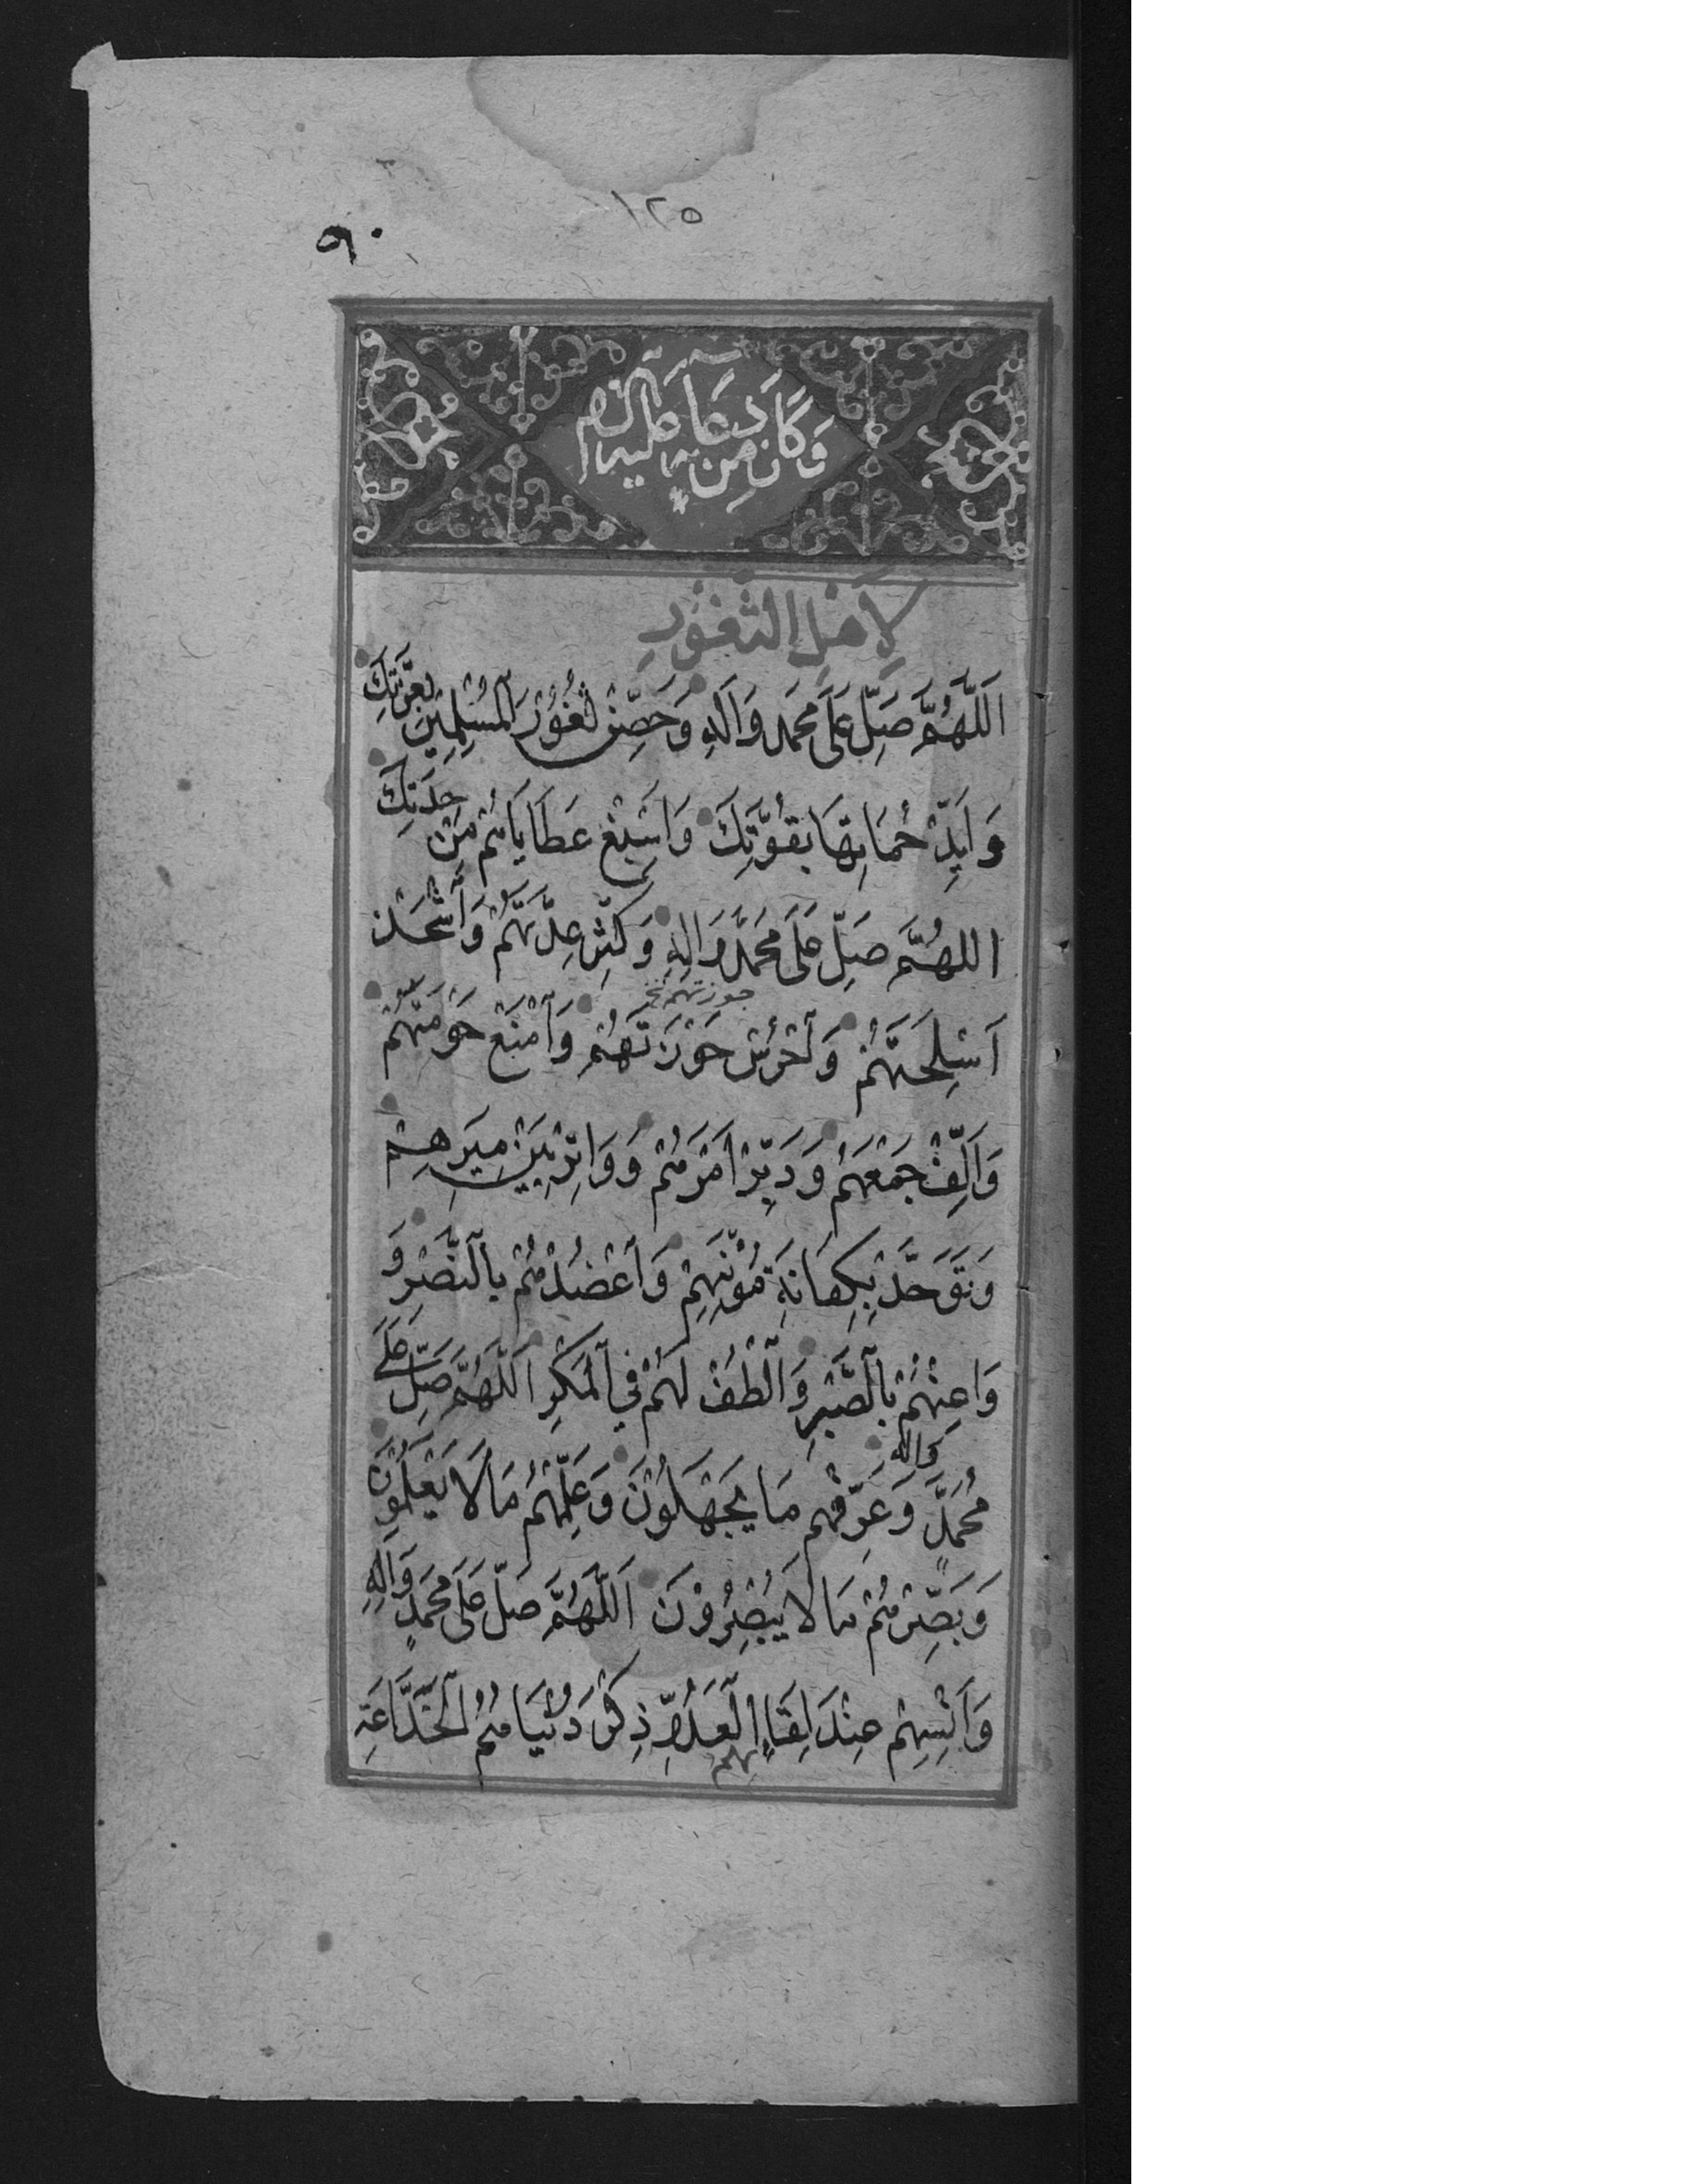 ١٢٥
٩٠
وَكَانَ مِنْ دُعَآئِهِ عَلَيْهِ السَّلَامُ
لِأَهْلِ الثُّغُورِ
اَللَّهُمَّ صَلِّ عَلَى مُحَمَّدٍ وَآلِهِ وَحَصِّنْ ثُغُورَ الْمُسْلِمِينَ بِعِزَّتِكَ
وَاَيِّدْ حُمَاتَهَا بِقُوَّتِكَ وَاَسْبِغْ عَطَايَاهُمْ مِنْ جِدَتِكَ
اللهُمَّ صَلِّ عَلَى مُحَمَّدٍ وَالِهِ وَكَثِّرْ عِدَّتَهُمْ وَاَشْحَذْ
اَسْلِحَتَهُمْ وَاَحْرُسْ حَوْزَتَهُمْ وَاَمْنَعْ حَوْمَتَهُمْ
حوزتهم خ
وَاَلِّفْ جَمْعَهُمْ وَدَبِّرْ اَمْرَهُمْ وَوَاتِرْ بَيْنَ مِيَرِهِمْ
وَتَوَحَّدْ بِكِفَايَةِ مُؤَنِهِمْ وَاَعْضُدْهُمْ بِالنَّصْرِ وَ
وَاَعِنْهُمْ بِالصَّبْرِ وَالْطُفْ لَهُمْ فِي الْمَكْرِ اَللَّهُمَّ صَلِّ عَلَى
مُحَمَّدٍ وَاله وَعَرِّفْهُمْ مَا يَجْهَلُونَ وَعَلِّمْهُمْ مَا لَا يَعْلَمُونَ
وَبَصِّرْهُمْ مَا لَا يُبْصِرُونَ اَللَّهُمَّ صَلِّ عَلَى مُحَمَّدٍ وَاٰلِهِ
وَاَنْسِهِمْ عِنْدَ لِقَائِهِمُ الْعَدُوَّ ذِكْرَ دُنْيَاهُمُ الْخَدَّاعَةِ